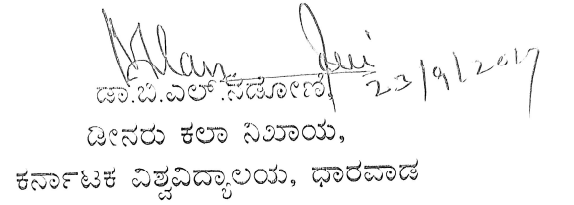 23/9/2017
ಡಾ.ಬಿ.ಎಲ್.ನಡೋಣಿ,
ಡೀನರು ಕಲಾ ನಿಖಾಯ,
ಕರ್ನಾಟಕ ವಿಶ್ವವಿದ್ಯಾಲಯ, ಧಾರವಾಡ